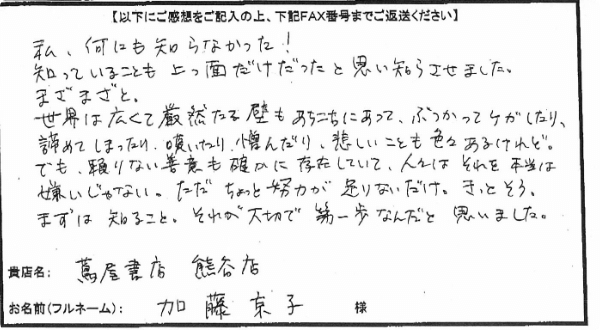 【以下にご感想をご記入の上、下記FAX番号までご返送ください】
私、何にも知らなかった!
知っていることも上っ面だけだったと思い知らさせました。
まざまざと。
世界は広くて厳然たる壁もあちこちにあって、ぶつかってケガしたり、
諦めてしまったり、嘆いたり、憎んだり、悲しいことも色々あるけれど。
でも、頼りない善意も確かに存在していて、人々はそれを本当は
嫌いじゃない。ただちょっと努力が足りないだけ。きっとそう。
まずは知ること。それが大切で第一歩なんだと思いました。
貴店名: 蔦屋書店 熊谷店
お名前(フルネーム): 加藤京子 様